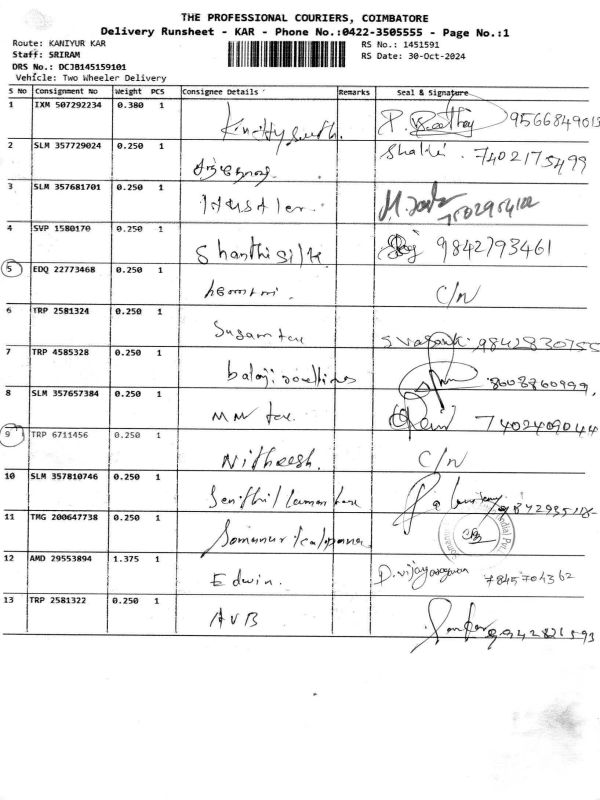 THE PROFESSIONAL COURIERS, COIMBATORE
Delivery Runsheet - KAR - Phone No.:0422-3505555 - Page No.:1
Route: KANIYUR KAR
RS No.: 1451591
Staff: SRIRAM
RS Date: 30-Oct-2024
DRS No.: DCJB145159101
Vehicle: Two Wheeler Delivery
S No Consignment No Weight PCS Consignee Details Remarks Seal & Signature
1 IXM 507292234 0.380 1
2 SLM 357729024 0.250 1 Shakti . 7402175499
3 SLM 357681701 0.250 1
4 SVP 1580170 0.250 1 Shanthi silk 9842793461
5 EDQ 22773468 0.250 1 C/N
6 TRP 2581324 0.250 1 Sugam tex 9842830755
7 TRP 4585328 0.250 1 balaji 8608860999,
8 SLM 357657384 0.250 1 MM tex 7402409044
9 TRP 6711456 0.250 1 Nitheesh. C/N
10 SLM 357810746 0.250 1
11 TMG 200647738 0.250 1 Somanur
12 AMD 29553894 1.375 1 Edwin. D.vijay 7845704362
13 TRP 2581322 0.250 1 AVB 9942821593